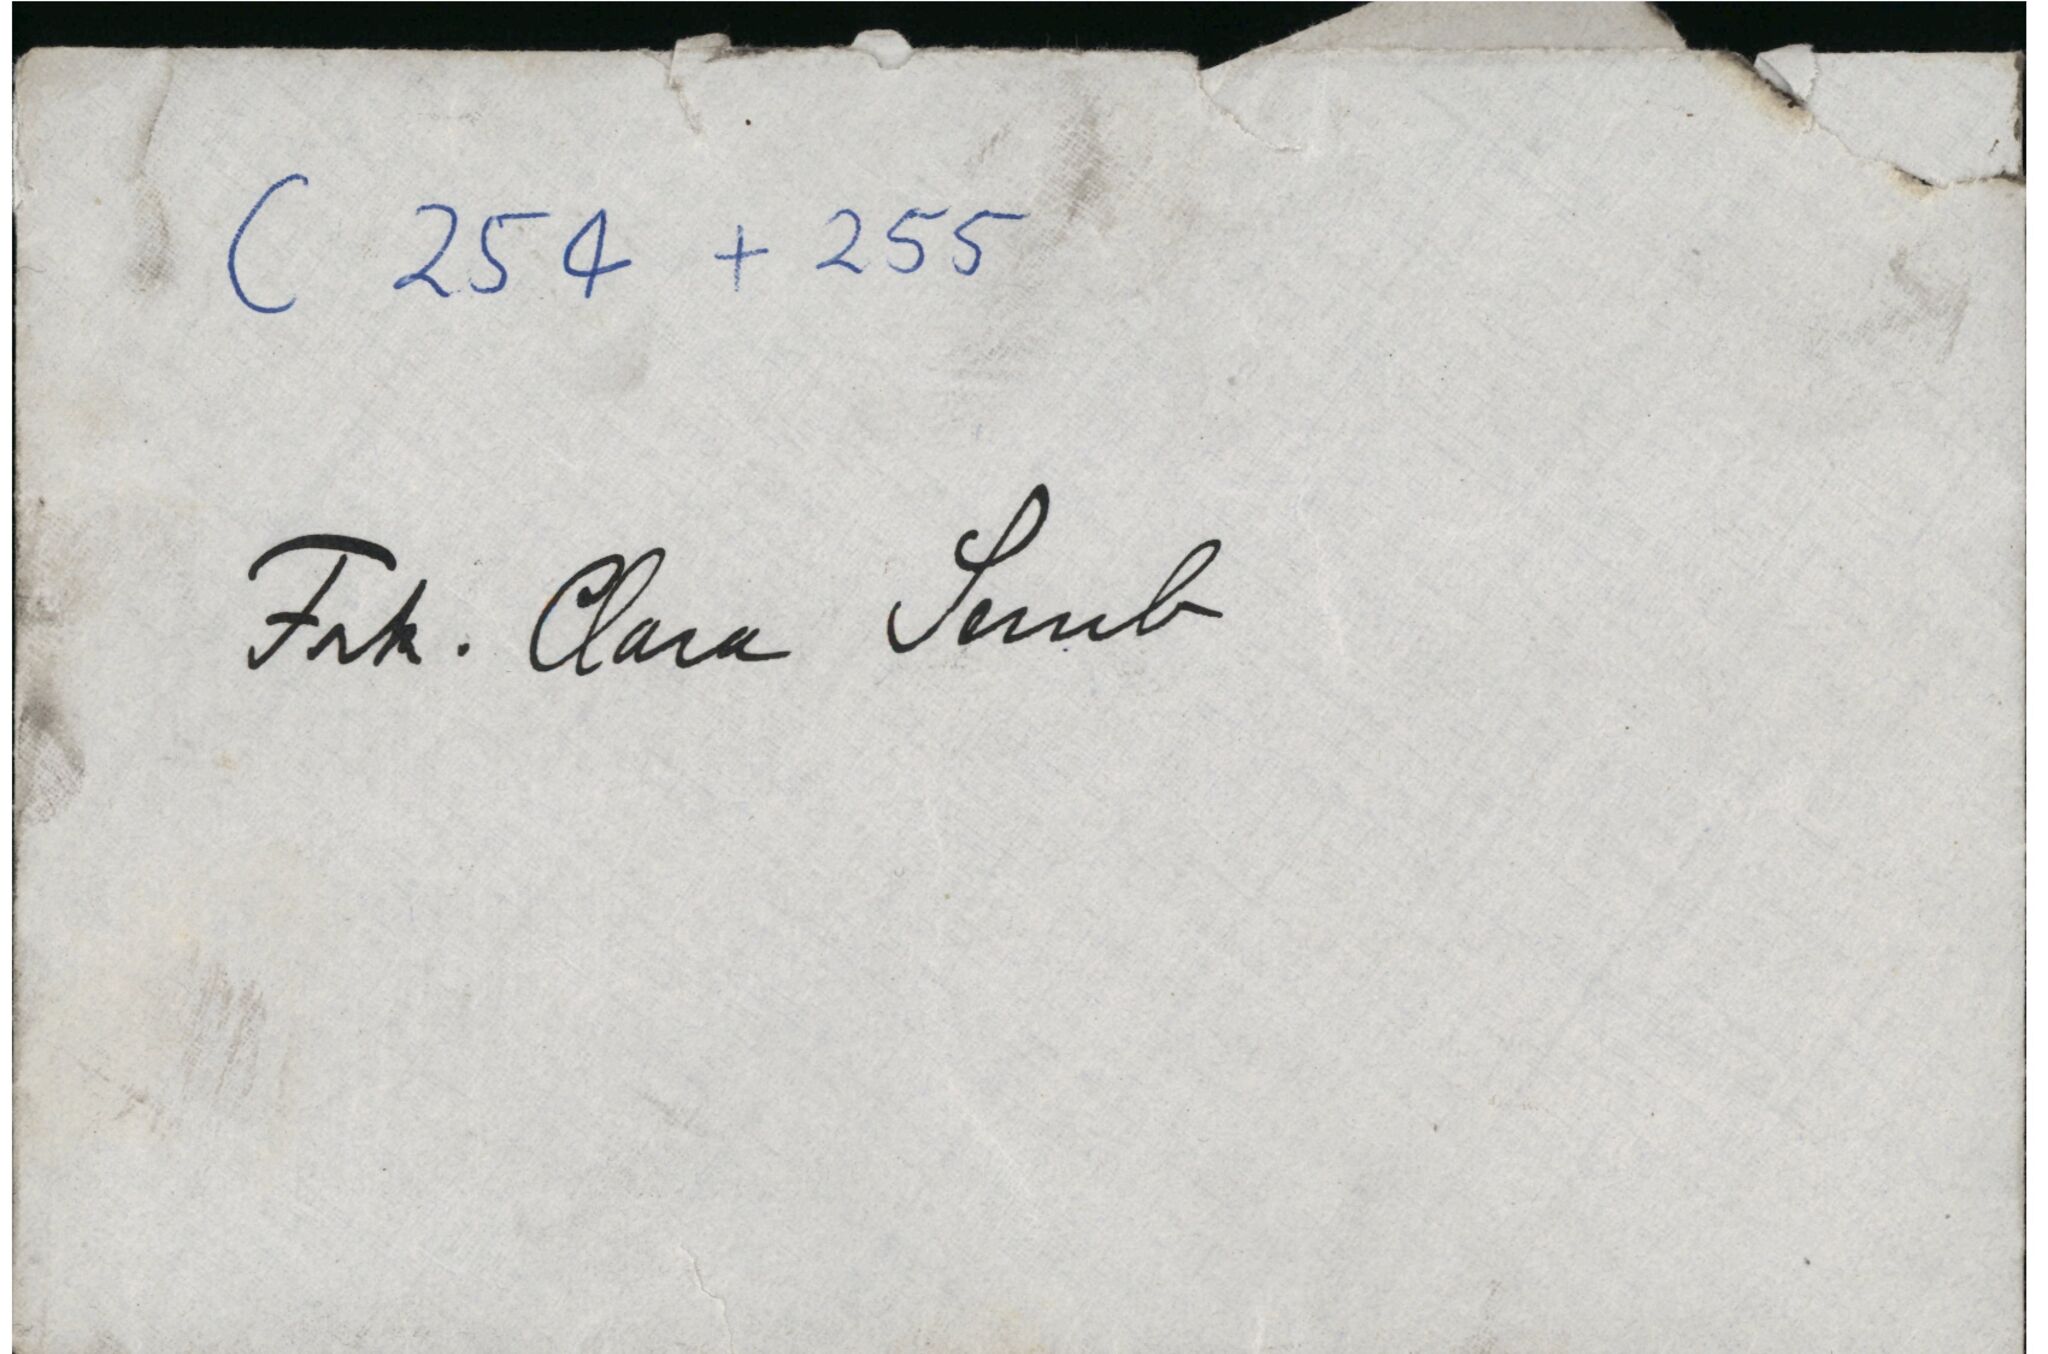 ( 254 + 255
Frk. Clara Semb